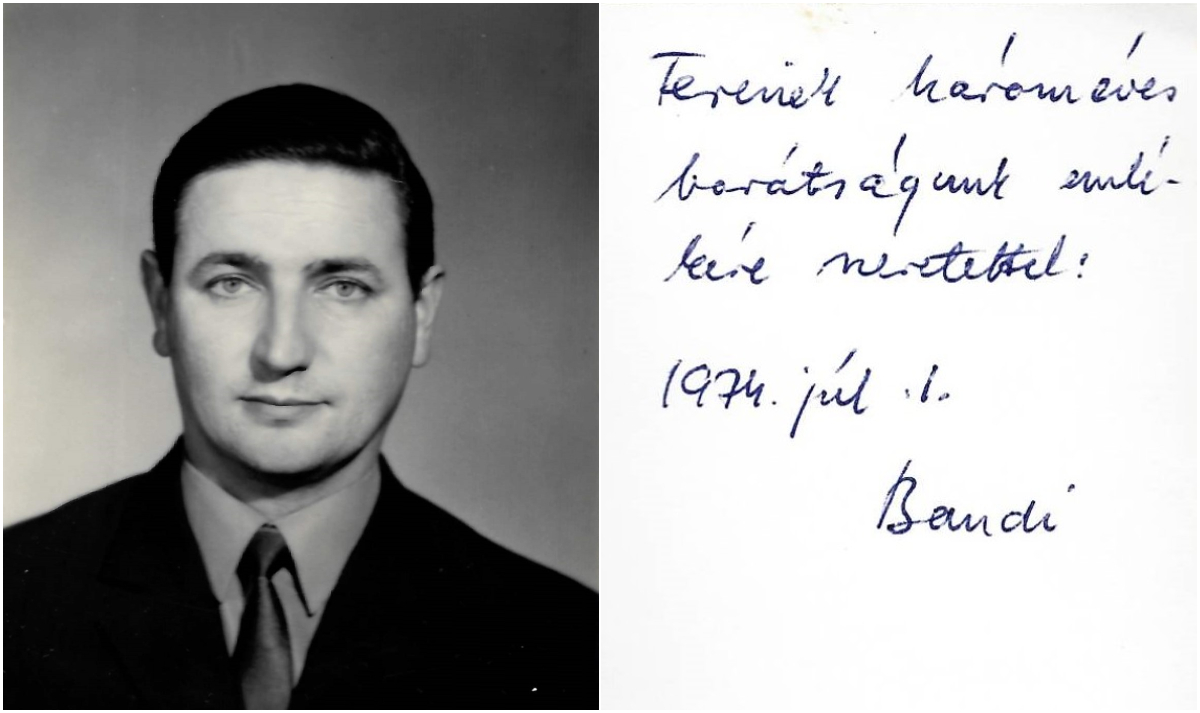 Ferinek hároméves
barátságunk emlé-
kére szeretettel:
1974. júl .1.
Bandi